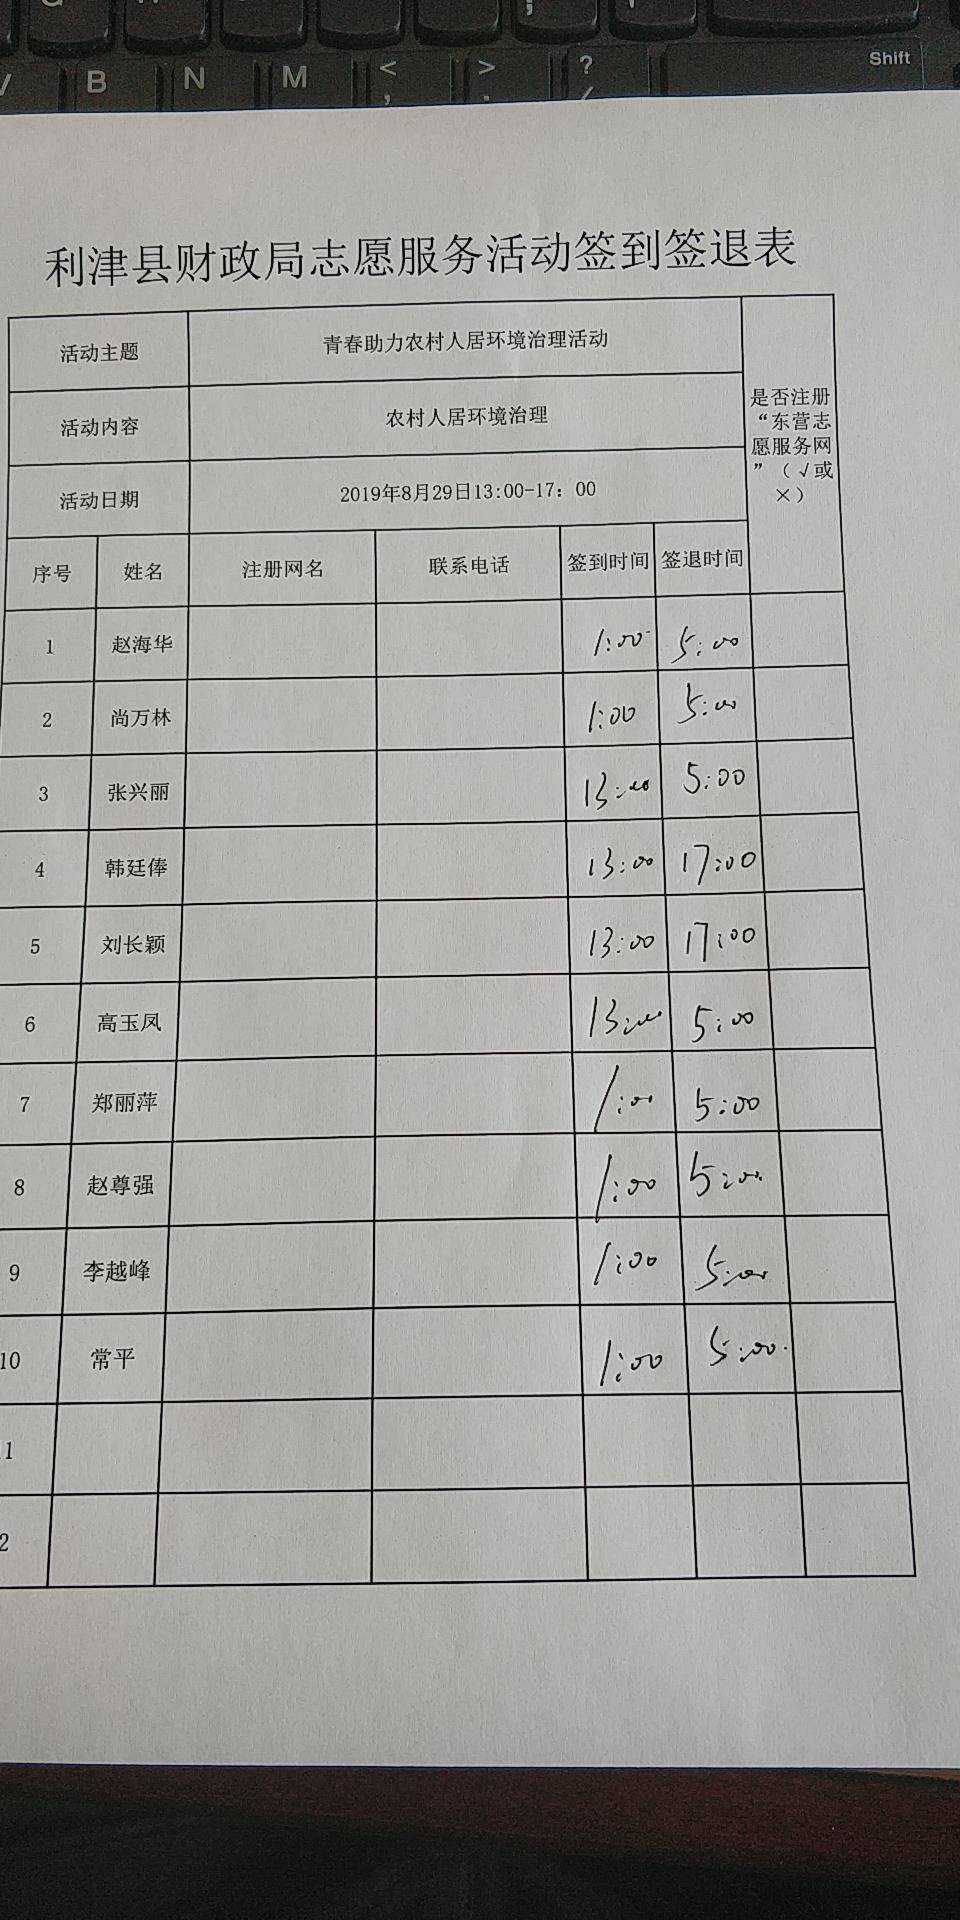 B N M < , > . ? / Shift
利津县财政局志愿服务活动签到签退表
活动主题 青春助力农村人居环境治理活动
活动内容 农村人居环境治理
活动日期 2019年8月29日13:00-17：00
是否注册
“东营志
愿服务网
”（√或
×）
序号 姓名 注册网名 联系电话 签到时间 签退时间
1 赵海华 1:00 5:00
2 尚万林 1:00 5:00
3 张兴丽 13:00 5:00
4 韩廷俸 13:00 17:00
5 刘长颖 13:00 17:00
6 高玉凤 13:00 5:00
7 郑丽萍 1:00 5:00
8 赵尊强 1:00 5:00
9 李越峰 1:00 5:00
10 常平 1:00 5:00
1
2